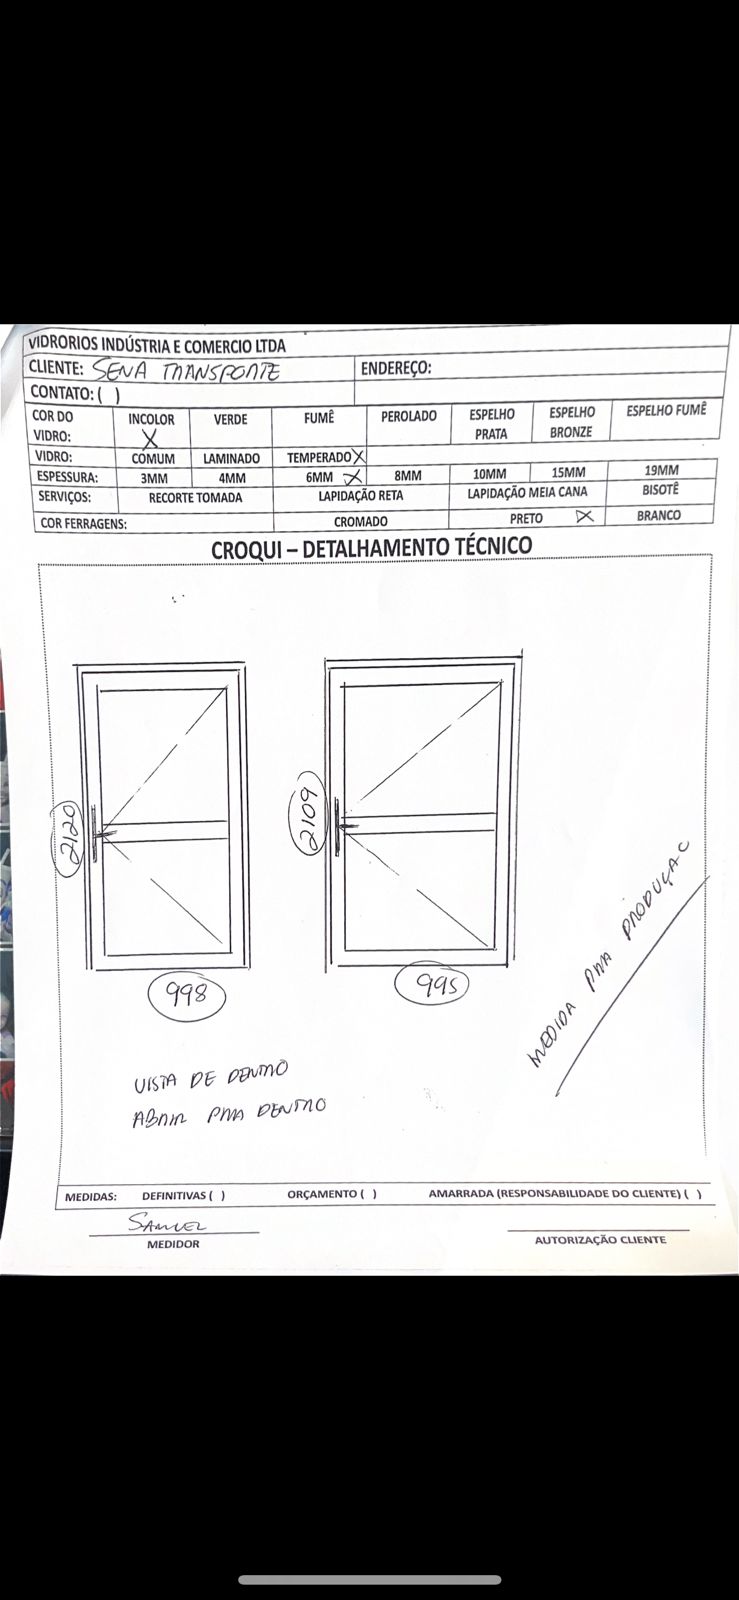 VIDRORIOS INDÚSTRIA E COMERCIO LTDA
CLIENTE: SENA TRANSPORTE ENDEREÇO:
CONTATO: ( )
COR DO VIDRO: INCOLOR X VERDE FUMÊ PEROLADO ESPELHO PRATA ESPELHO BRONZE ESPELHO FUMÊ
VIDRO: COMUM LAMINADO TEMPERADO X
ESPESSURA: 3MM 4MM 6MM X 8MM 10MM 15MM 19MM
SERVIÇOS: RECORTE TOMADA LAPIDAÇÃO RETA LAPIDAÇÃO MEIA CANA BISOTÊ
COR FERRAGENS: CROMADO PRETO X BRANCO
CROQUI – DETALHAMENTO TÉCNICO
2120
2109
998
995
MEDIDA PRA PRODUÇAC
VISTA DE DENTRO
ABRIR PRA DENTRO
MEDIDAS: DEFINITIVAS ( ) ORÇAMENTO ( ) AMARRADA (RESPONSABILIDADE DO CLIENTE) ( )
SAMUEL
MEDIDOR
AUTORIZAÇÃO CLIENTE